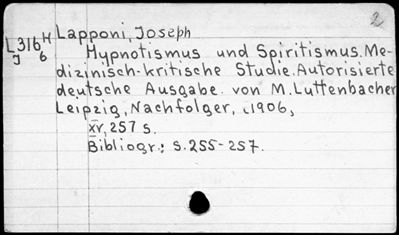 2
Lapponi, Joseph
L316H Hypnotismus und Spiritismus. Me-
J 6 dizinisch-kritische Studie. Autorisierte
deutsche Ausgabe. von M. Luttenbacher
Leipzig, Nachfolger, c1906,
xv, 257 s.
Bibliogr.: s. 255-257.